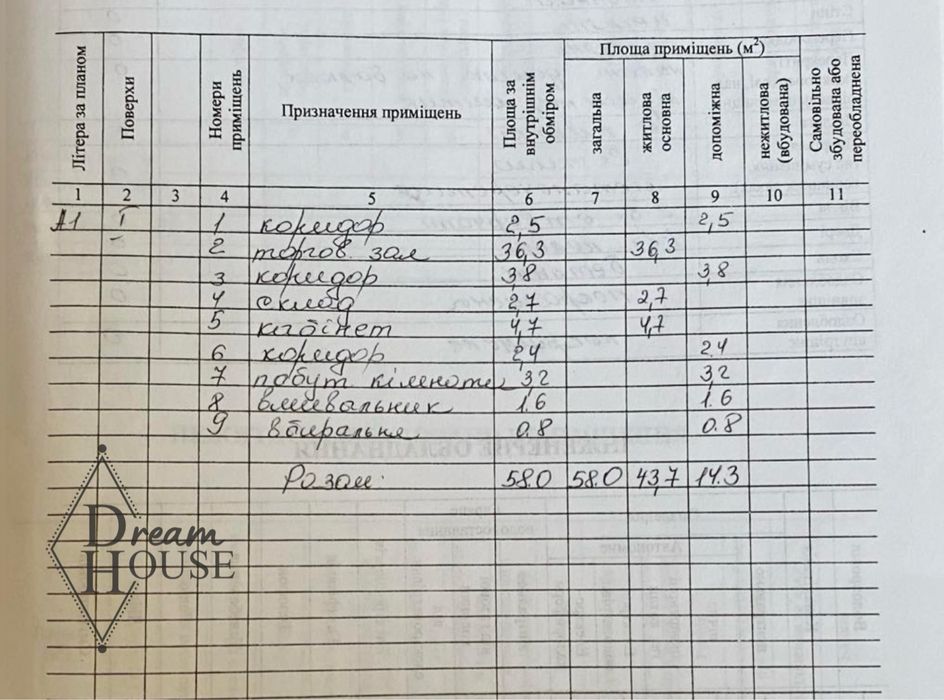 Літера за планом
Поверхи
Номери приміщень
Призначення приміщень
Площа за внутрішнім обміром
Площа приміщень (м²)
загальна
житлова основна
допоміжна
нежитлова (вбудована)
Самовільно збудована або переобладнена
1 2 3 4 5 6 7 8 9 10 11
А1 І 1 коридор 2,5 2,5
2 торгов. зал 36,3 36,3
3 коридор 3,8 3,8
4 склад 2,7 2,7
5 кабінет 4,7 4,7
6 коридор 2,4 2.4
7 побут. кімната 3,2 3,2
8 вмивальник 1.6 1.6
9 вбиральня 0.8 0.8
Разом: 58.0 58.0 43,7 14.3
Dream
HOUSE
ІНЖЕНЕРНЕ ОБЛАДНАННЯ